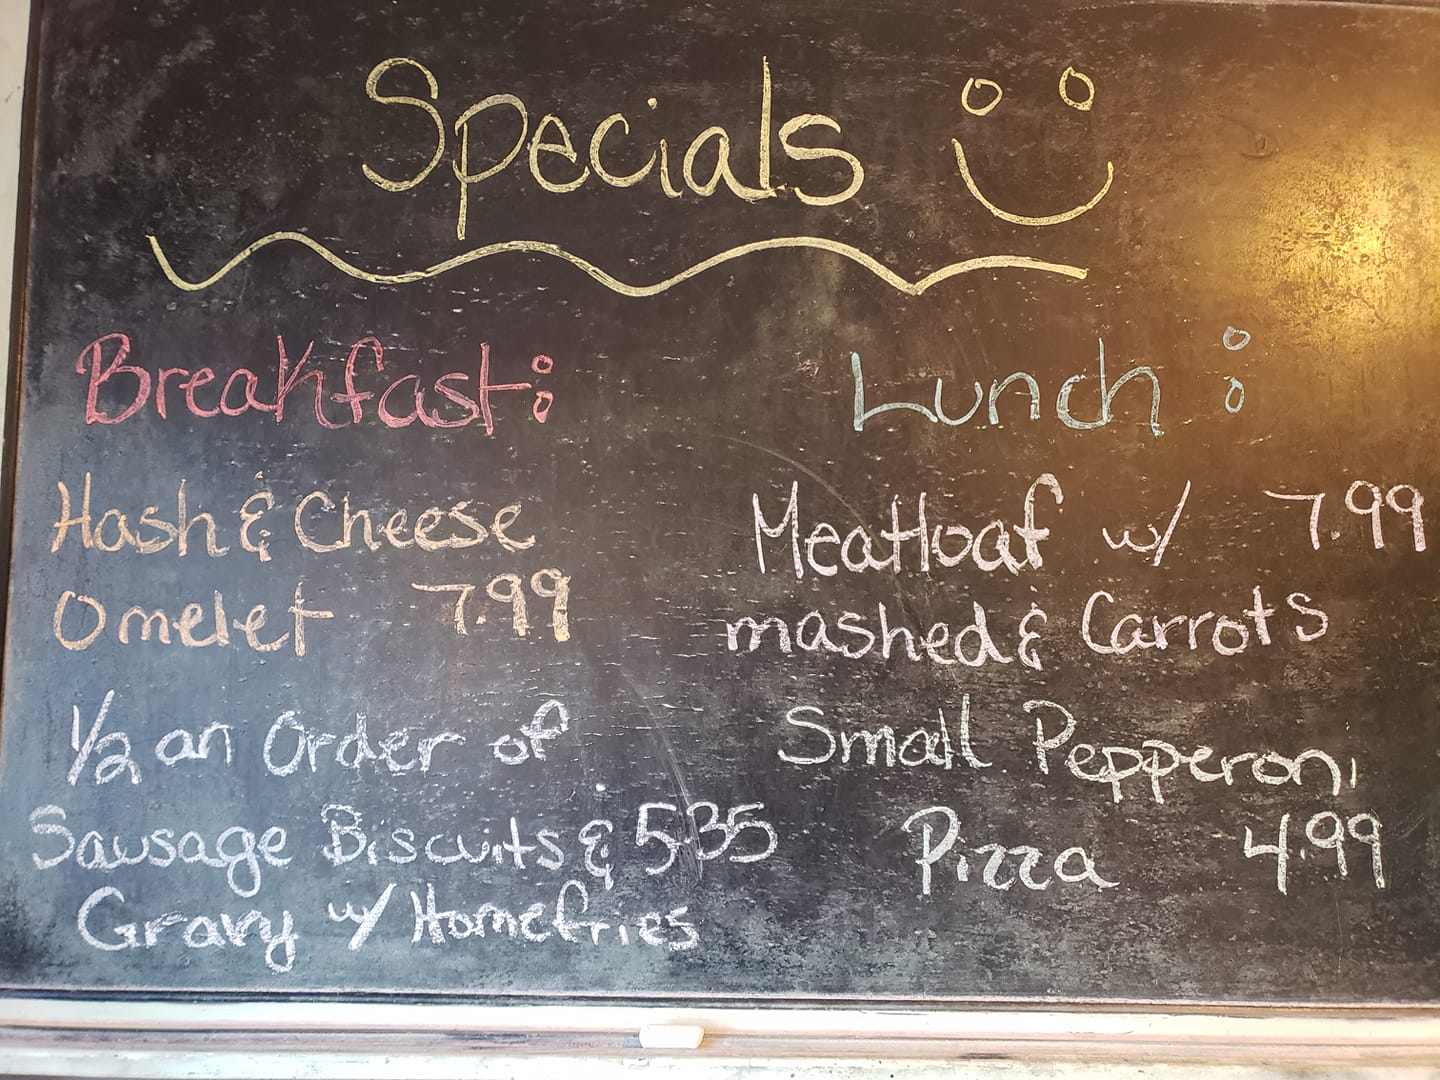 Specials
Breakfast:
Hash & Cheese
Omelet 7.99
1/2 an Order of
Sausage Biscuits & 5.35
Gravy w/ Homefries
Lunch:
Meatloaf w/ 7.99
mashed & Carrots
Small Pepperoni
Pizza 4.99